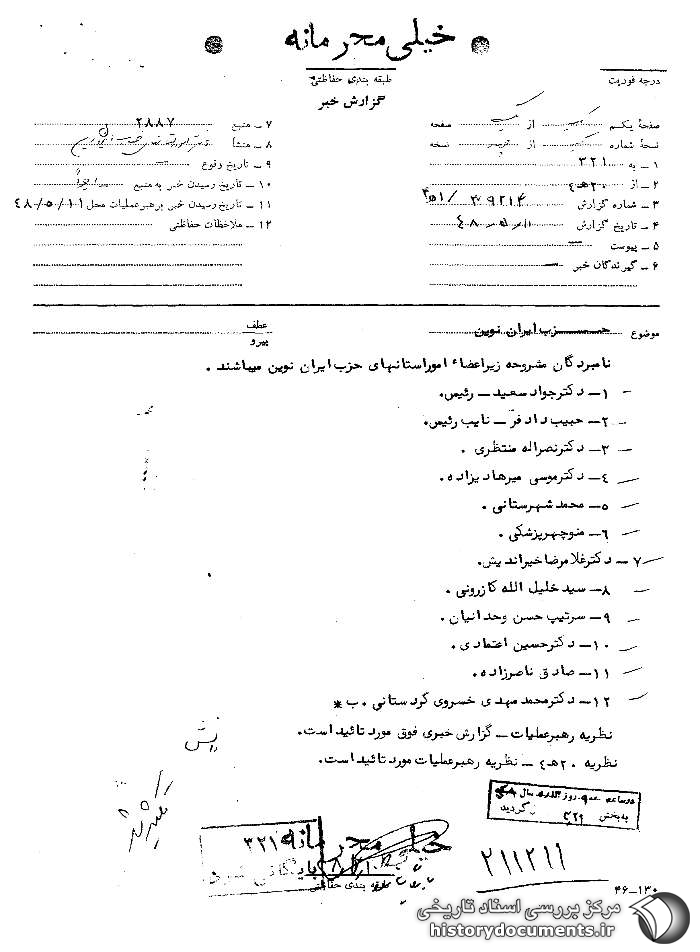 خیلی محرمانه
طبقه بندی حفاظتی
درجه فوریت
گزارش خبر
صفحهٔ یکم از یک صفحه
نسخهٔ شماره از نسخه
۱ـ به ۳۲۱
۲ـ از ۲۰هـ٤
۳ـ شماره گزارش
۴ـ تاریخ گزارش ٤٨ـ٥ـ١١
۵ـ پیوست ـ
۶ـ گیرندگان خبر ـ
۷ـ منبع ۲۸۸۷
۸ـ منشأ
۹ـ تاریخ وقوع ـ
۱۰ـ تاریخ رسیدن خبر به منبع
۱۱ـ تاریخ رسیدن خبر برهبر عملیات محل ٤٨/٥/١١
۱۲ـ ملاحظات حفاظتی
موضوع حــزب ایران نوین
عطف
پیرو
نامبردگان مشروحه زیر اعضاء اموراستانهای حزب ایران نوین میباشند .
۱ـ دکتر جواد سعید ـ رئیس.
۲ـ حبیب دادفرّ ـ نایب رئیس.
۳ـ دکتر نصراله منتظری .
٤ـ دکتر موسی میرهادیزاده .
٥ـ محمد شهرستانی .
٦ـ منوچهر پزشکی .
۷ـ دکتر غلامرضا خیراندیش.
۸ـ سید خلیل الله کازرونی .
۹ـ سرتیپ حسن وحدانیان .
۱۰ـ دکتر حسین اعتمادی .
۱۱ـ صادق ناصرزاده .
۱۲ـ دکتر محمد مهدی خسروی کردستانی . ب *
نظریه رهبر عملیات ـ گزارش خبری فوق مورد تائید است.
نظریه ۲۰هـ٤ ـ نظریه رهبر عملیات مورد تائید است.
درساعت روز سال
به بخش گردید
خیلی محرمانه
طبقه بندی حفاظتی
۳۲۱
بایگانی شود
۲۱۱۲۱۱
۴۶ـ۱۳۰
مرکز بررسی اسناد تاریخی
historydocuments.ir